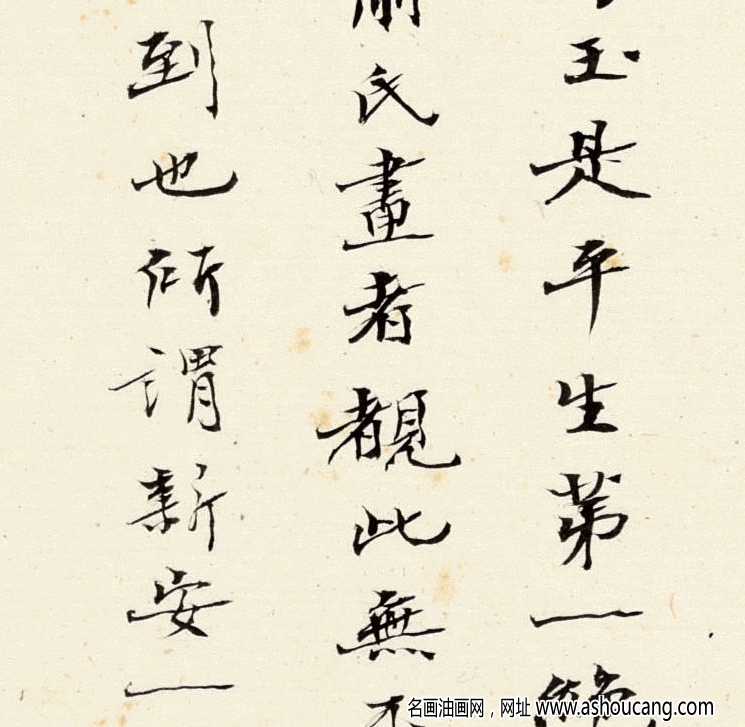 玉是平生第一
氏畫者覩此無不
到也所謂新安一
名画油画网，网址 www.ashoucang.com